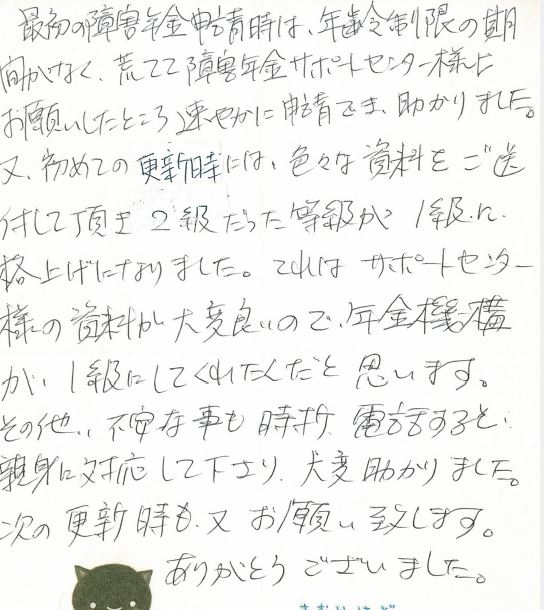 最初の障害年金申請時は、年齢制限の期
間がなく、荒てて障害年金サポートセンター様に
お願いしたところ速やかに申請でき、助かりました。
又、初めての更新時には、色々な資料をご送
付して頂き2級だった等級が1級に
格上げになりました。これは サポートセンター
様の資料が大変良いので、年金機構
が、1級にしてくれたんだと思います。
その他、不安な事も時折 電話すると、
親身に対応して下さり、大変助かりました。
次の更新時も、又お願い致します。
ありがとうございました。